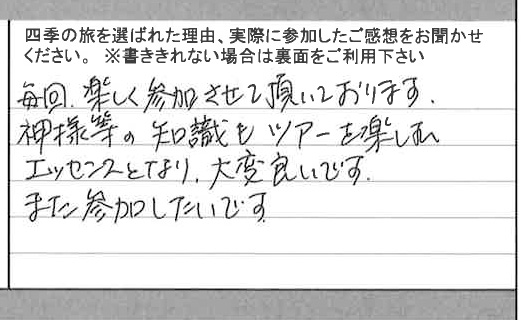 四季の旅を選ばれた理由、実際に参加したご感想をお聞かせ
ください。 ※書ききれない場合は裏面をご利用下さい
毎回、楽しく参加させて頂いております。
神様等の知識もツアーを楽しむ
エッセンスとなり、大変良いです。
また参加したいです